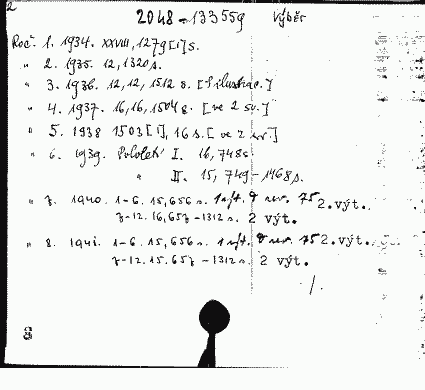 2
2048-133559 výběr
Roč. 1. 1934. XXVIII, 1279[1] s.
" 2. 1935. 12, 1320 s.
" 3. 1936. 12, 12, 1512 s.
" 4. 1937. 16, 16, 1504 s. [ve 2 sv.]
" 5. 1938 1503 [1], 16 s. [ve 2 sv.]
" 6. 1939. Pololetí I. 16, 748 s
" II. 15, 749-1468 s.
" 7. 1940. 1-6. 15, 656 s. 75 2. výt.
7-12. 16, 657-1312 s. 2 výt.
" 8. 1941. 1-6. 15, 656 s. 75 2. výt.
7-12. 15. 657-1312 s. 2 výt.
8